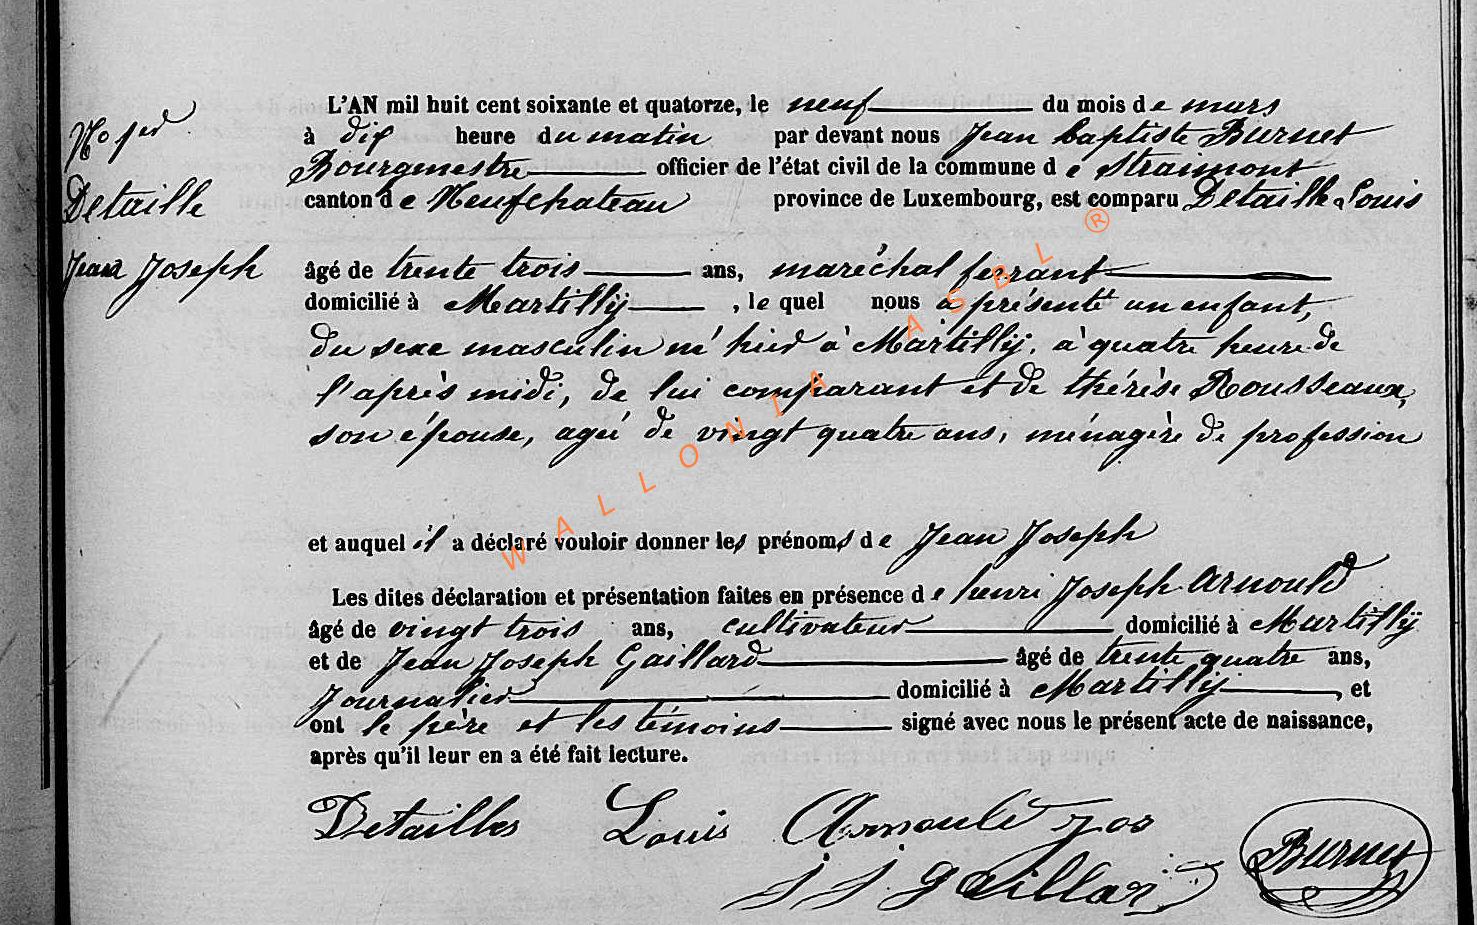 L'AN mil huit cent soixante et quatorze, le neuf du mois de mars
à dix heure du matin par devant nous Jean Baptiste Burnet
Bourgmestre officier de l'état civil de la commune de Straimont
canton de Neufchateau province de Luxembourg, est comparu Detaille Louis
Detaille
Jean Joseph
âgé de trente trois ans, maréchal ferrant
domicilié à Martilly, le quel nous a présenté un enfant,
du sexe masculin né hier à Martilly, à quatre heure de
l'après midi, de lui comparant et de thérèse Rousseaux,
son épouse, ageé de vingt quatre ans, ménagère de profession
et auquel il a déclaré vouloir donner les prénoms de Jean Joseph
Les dites déclaration et présentation faites en présence de henri Joseph Arnould
âgé de vingt trois ans, cultivateur domicilié à Martilly
et de Jean Joseph Gaillard âgé de trente quatre ans,
Journalier domicilié à Martilly, et
ont le père et les témoins signé avec nous le présent acte de naissance,
après qu'il leur en a été fait lecture.
Detailles Louis Arnould Jos
J J Gaillard Burnet
WALLONIA ASBL ®